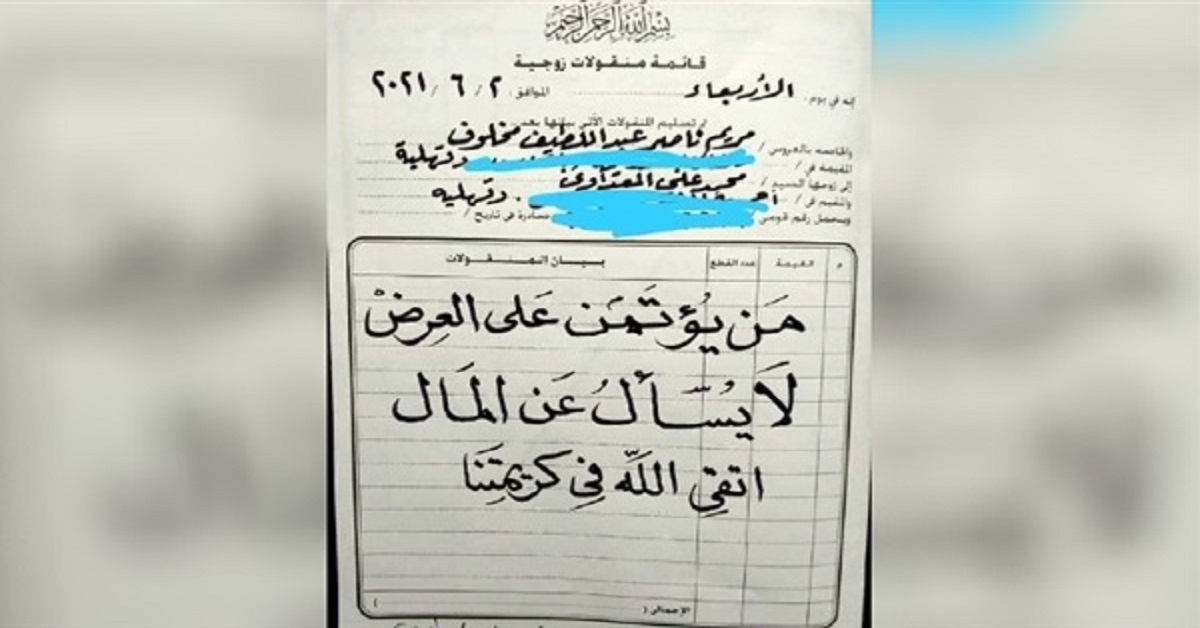 بسم الله الرحمن الرحيم
قائمة منقولات زوجية
إنه في يوم: الأربعاء الموافق: ٢ / ٦ / ٢٠٢١
تم تسليم المنقولات الآتي بيانها بعد
والخاصه بالعروس / مريم ناصر عبد اللطيف مخلوف
المقيمة في / دقهلية
إلى زوجها السيد / محمد علي المعداوي
والمقيم في / دقهليه
ويحمل رقم قومي صادرة في تاريخ /
م القيمة عدد القطع بيـــان المنـقــولات
مَن يُؤتَمَن عَلى العِرضْ
لَا يُسّألُ عَن المَال
اتقِي اللَّه فِي كَرِيمَتِنَا
الإجمالى ( )